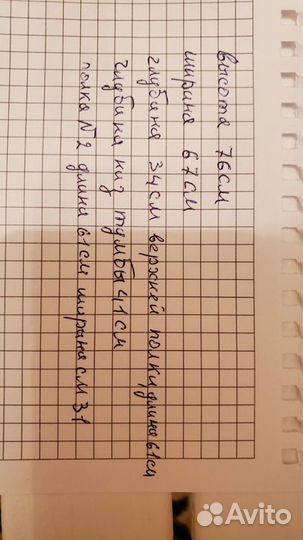 высота 76см
ширина 67см
глубина 34см верхней полки, длина 61см
глубина низ тумбы 41см
полка №2 длина 61см ширина см 31
Avito